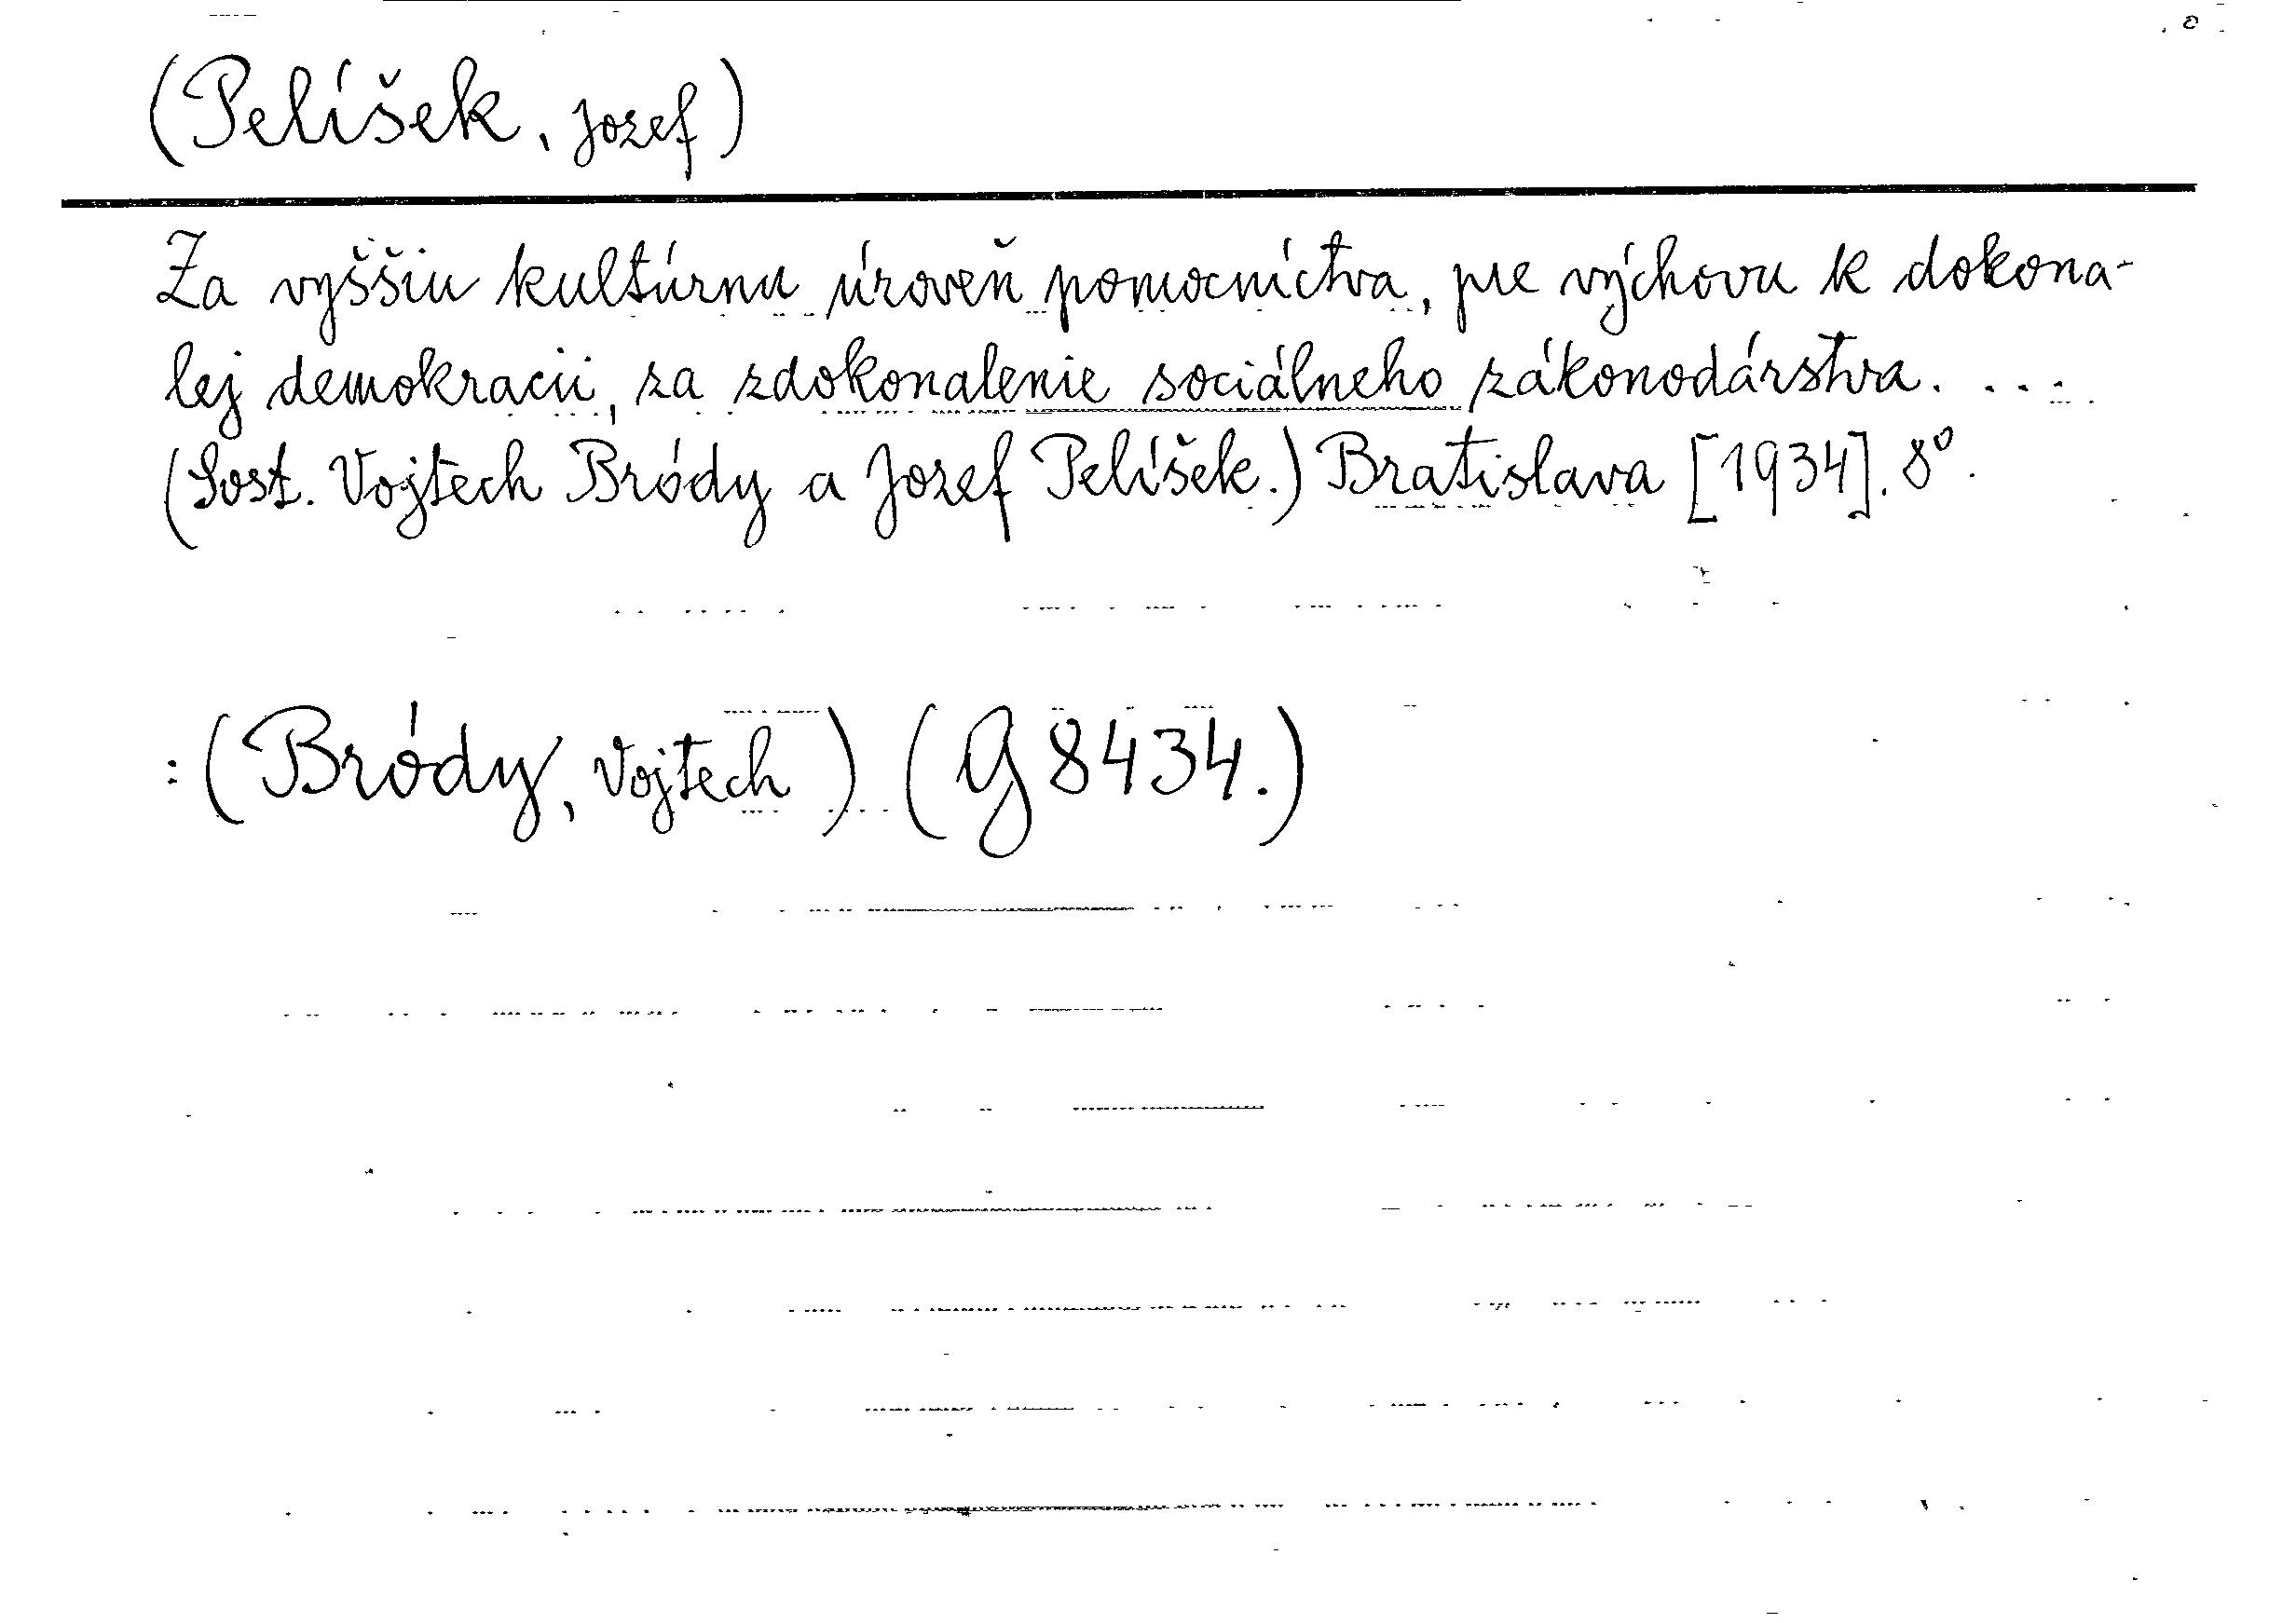 (Pelíšek, Jozef)
Za vyššiu kultúrnu úroveň pomocníctva, pre výchovu k dokona-
lej demokracii, za zdokonalenie sociálneho zákonodárstva. ...
(Sost. Vojtech Bródy a Jozef Pelíšek.) Bratislava [1934]. 8°.
: (Bródy, Vojtech) (G 8434.)